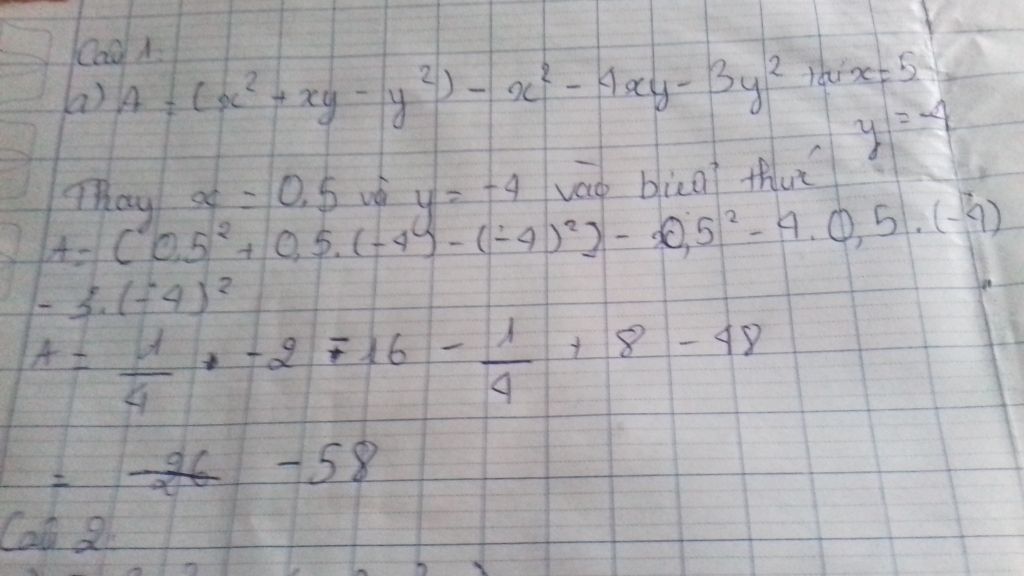 Câu 1.
a) A = (x² + xy - y²) - x² - 4xy - 3y² x = 5
y = -4
Thay x = 0,5 và y = -4 vào biểu thức
A = (0,5² + 0,5.(-4) - (-4)²) - 0,5² - 4.0,5.(-4)
- 3.(-4)²
A = 1/4 + -2 - 16 - 1/4 + 8 - 48
= -58
Câu 2.